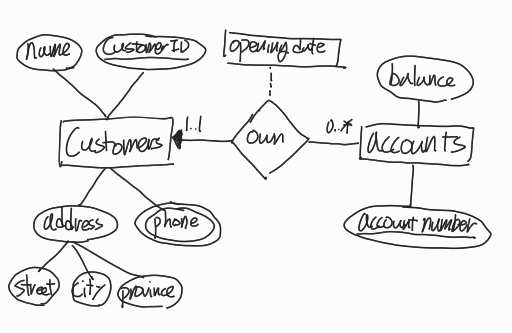 name
Customer ID
opening date
balance
Customers
1..1
own
0..*
accounts
address
phone
account number
street
city
province